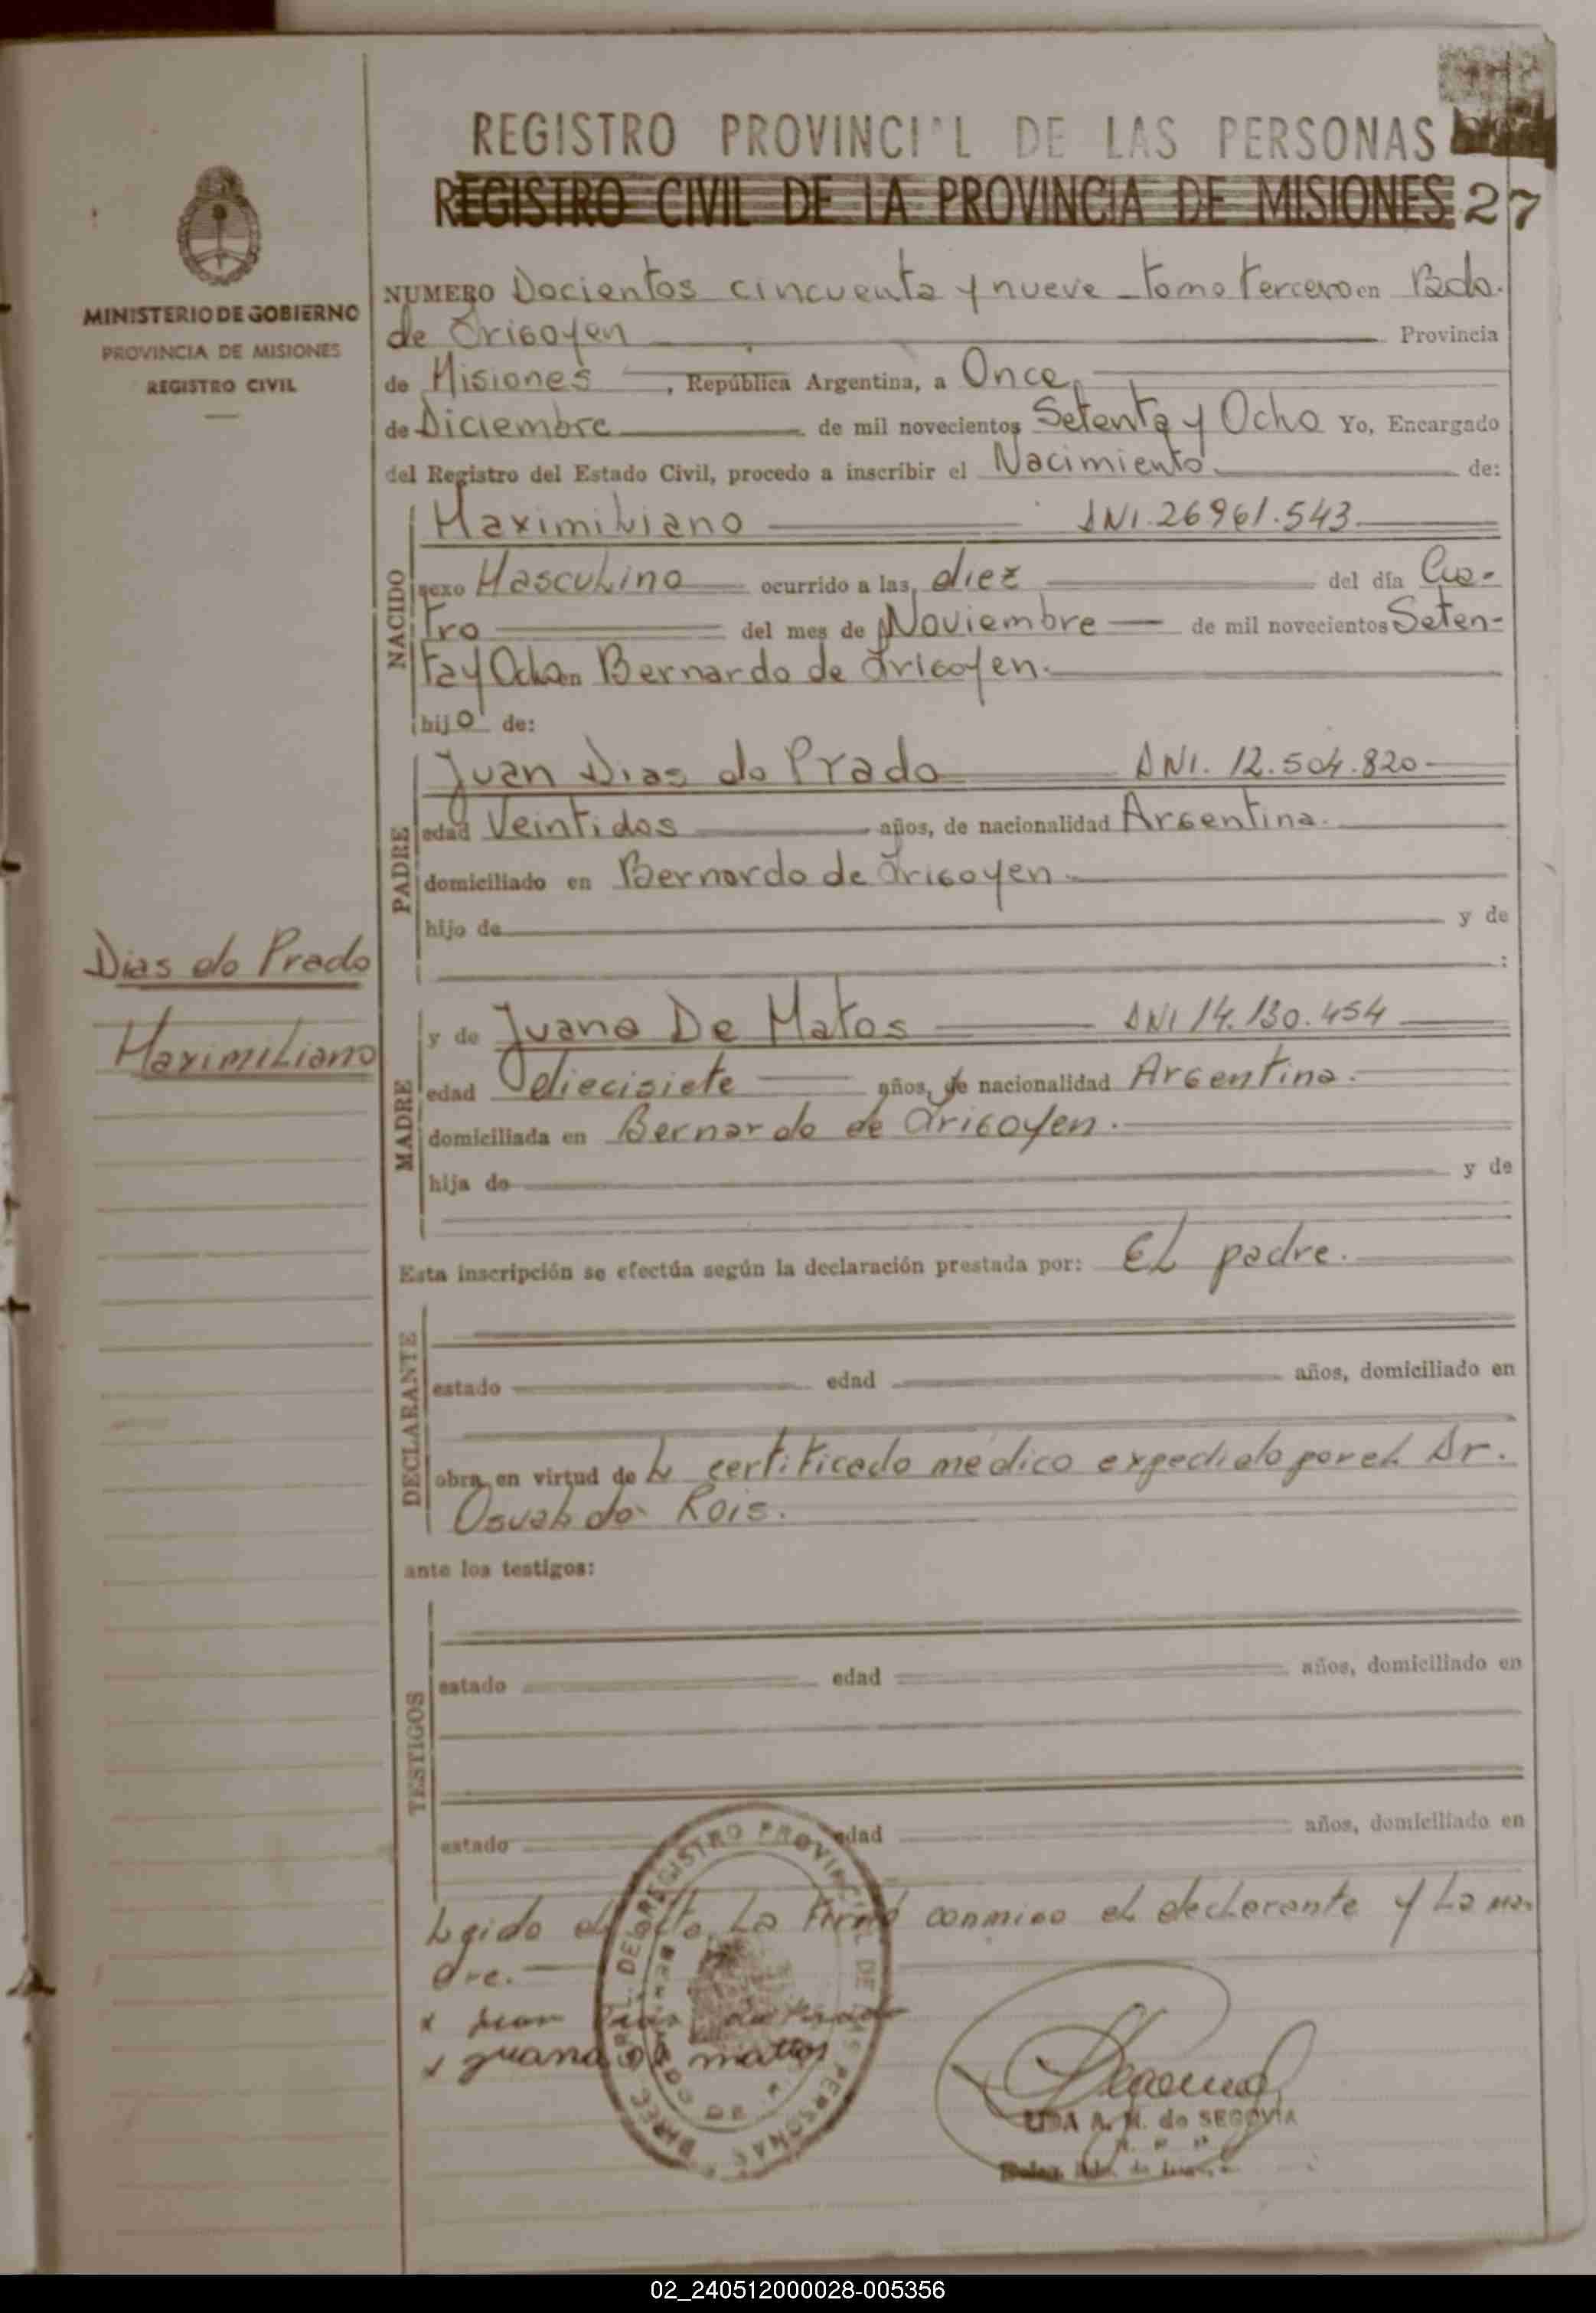 REGISTRO PROVINCI L DE LAS PERSONAS
REGISTRO CIVIL DE LA PROVINCIA DE MISIONES 27
MINISTERIO DE GOBIERNO
PROVINCIA DE MISIONES
REGISTRO CIVIL
NUMERO Docientos cincuenta y nueve - tomo tercero en Bdo.
de Irigoyen Provincia
de Misiones, República Argentina, a Once
de Diciembre de mil novecientos Setenta y Ocho Yo, Encargado
del Registro del Estado Civil, procedo a inscribir el Nacimiento de:
NACIDO
Maximiliano DNI. 26961.543
sexo Masculino ocurrido a las diez del día Cua-
tro del mes de Noviembre de mil novecientos Seten-
ta y Ocho en Bernardo de Irigoyen.
hijo de:
PADRE
Juan Dias do Prado DNI. 12.504.820
edad Veintidos años, de nacionalidad Argentina.
domiciliado en Bernardo de Irigoyen.
hijo de y de
:
Dias do Prado
Maximiliano
MADRE
y de Juana De Matos DNI 14.130.454
edad diecisiete años, de nacionalidad Argentina.
domiciliada en Bernardo de Irigoyen.
hija de y de
Esta inscripción se efectúa según la declaración prestada por: El padre.
DECLARANTE
estado edad años, domiciliado en
obra en virtud de L certificado medico expedido por el Dr.
Osvaldo Rois.
ante los testigos:
TESTIGOS
estado edad años, domiciliado en
estado edad años, domiciliado en
Leido el acta, la firmó conmigo el declarante y la ma-
dre.
x juan
x juana de mattos
REGISTRO PROVINCIAL DE LAS PERSONAS
LIDA A. M. de SEGOVIA
02_240512000028-005356